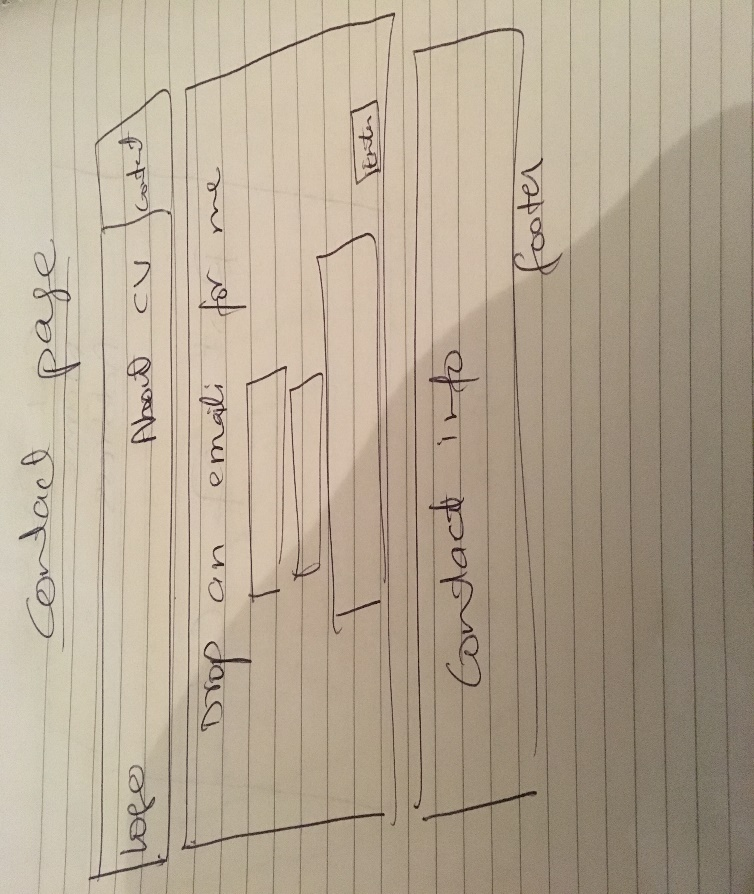 Contact page
Logo About CV Contact
Drop an email for me
Enter
Contact info
footer